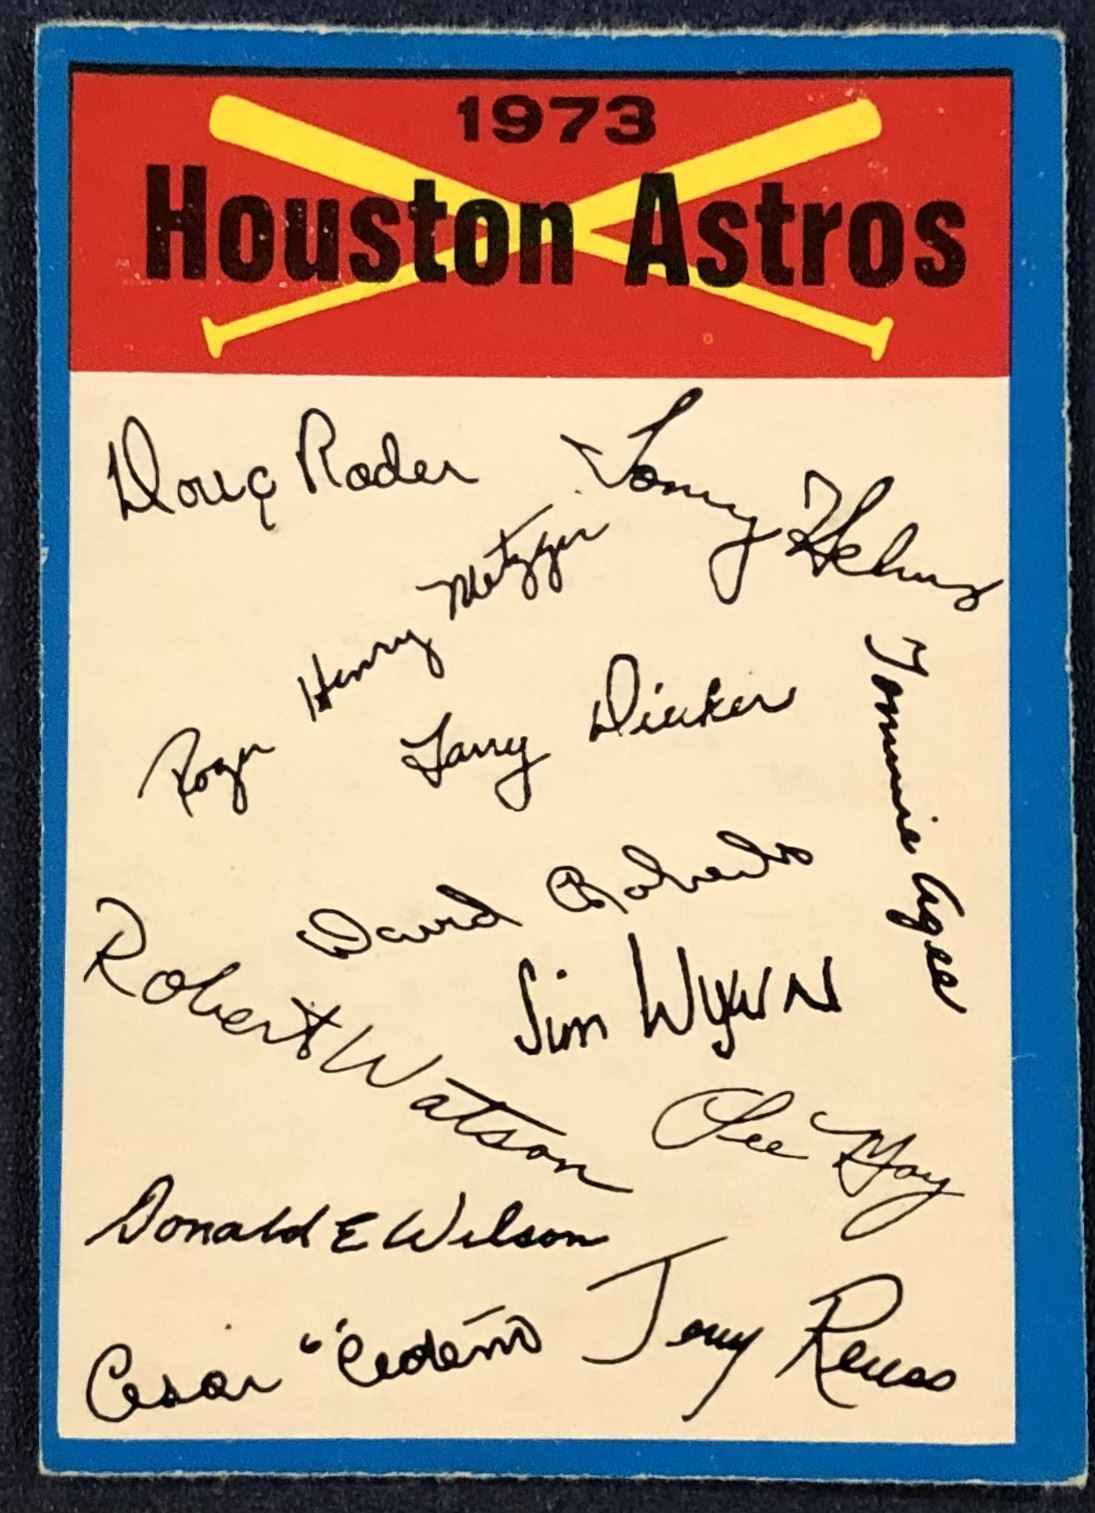 1973
Houston Astros
Doug Rader
Tommy Helms
Roger Henry Metzger
Larry Dierker
Tommie Agee
David Roberts
Robert Watson
Jim Wynn
Lee May
Donald E Wilson
Cesar "Cedeño
Jerry Reuss